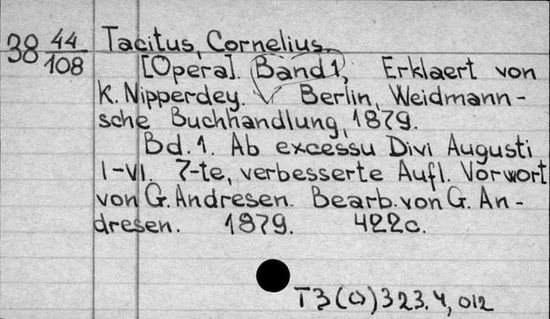 38 44/108
Tacitus, Cornelius.
[Opera]. Band 1, Erklaert von
K. Nipperdey. Berlin, Weidmann-
sche Buchhandlung, 1879.
Bd. 1. Ab excessu Divi Augusti
I-VI. 7-te, verbesserte Aufl. Vorwort
von G. Andresen. Bearb. von G. An-
dresen. 1879. 422c.
T3(0)323.4,012